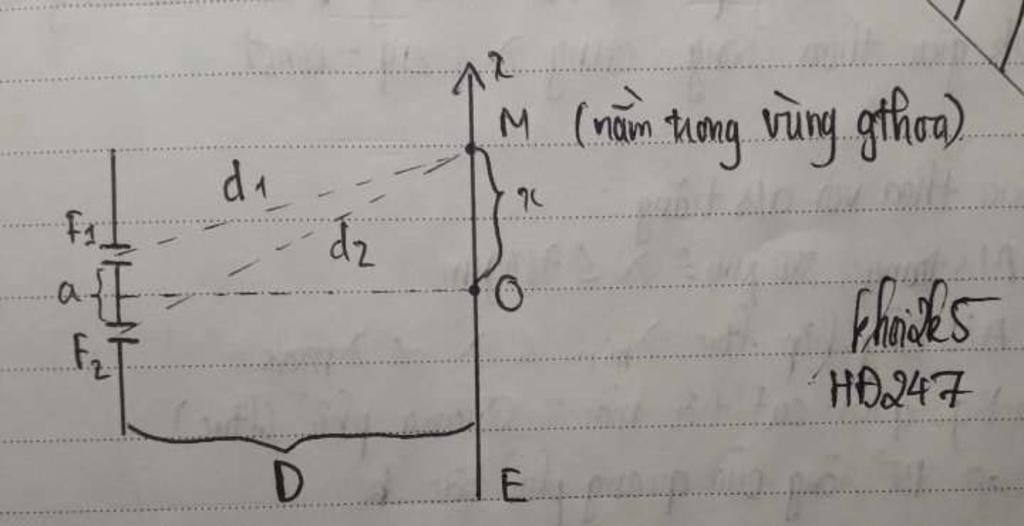 x
M (nằm trong vùng gthoa)
d1
x
F1
d2
a
O
F2
khoi2k5
HĐ247
D
E